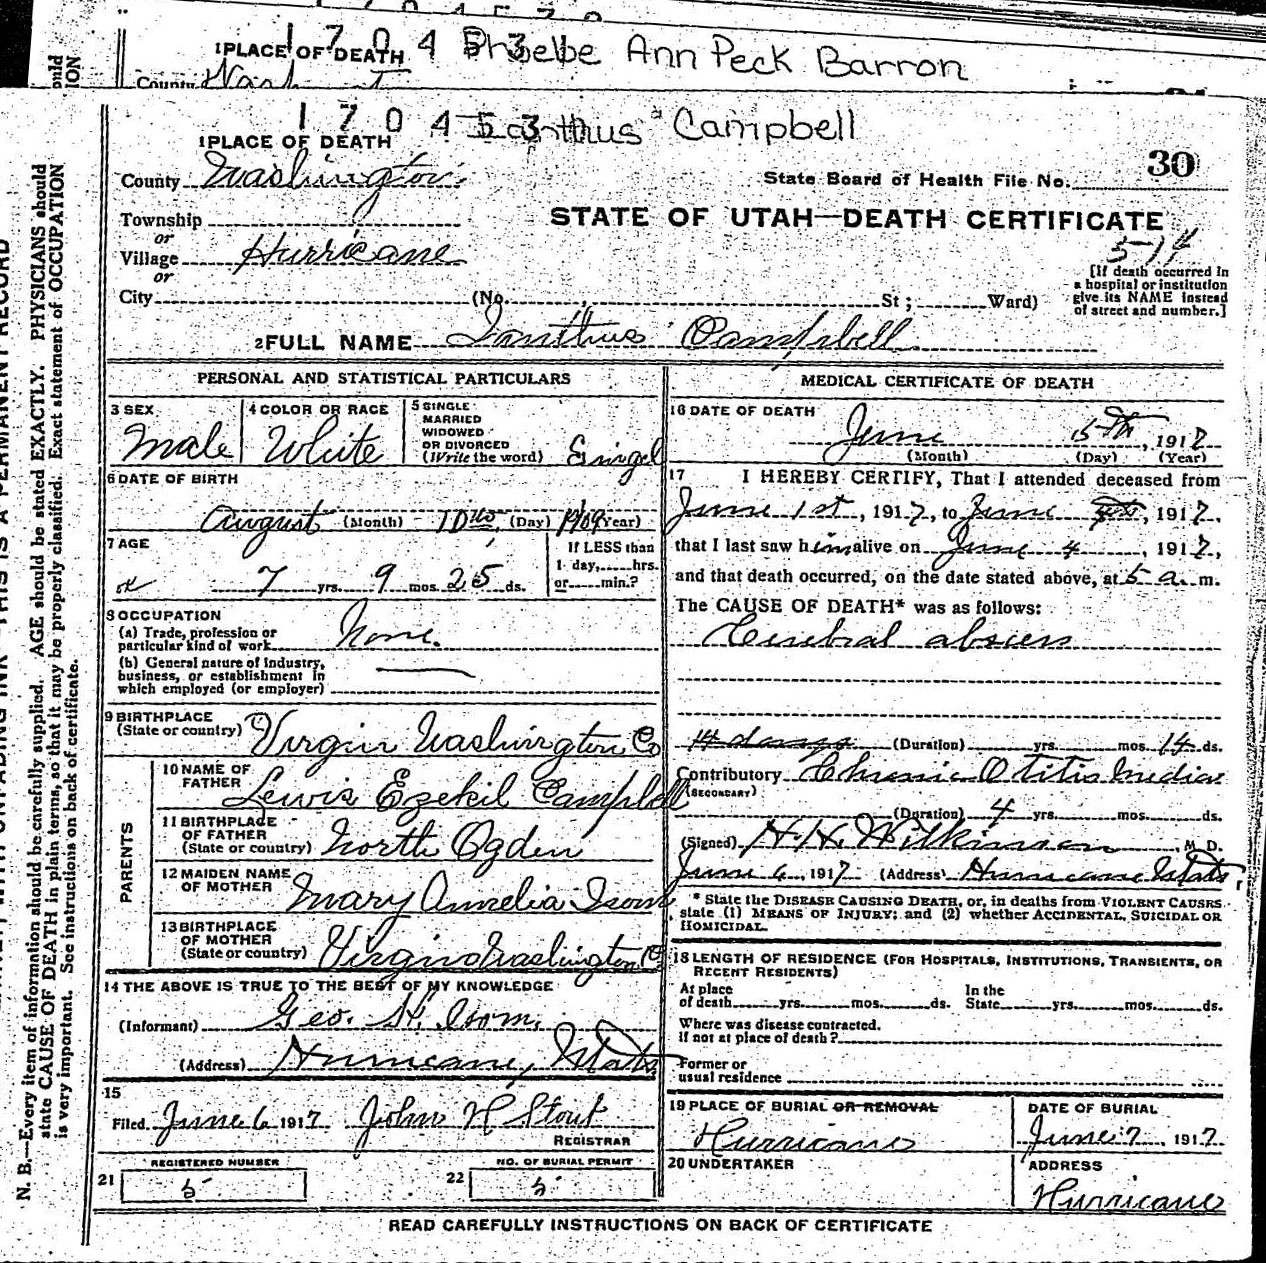 1PLACE OF DEATH
1 7 0 4 5 3 1
Phoebe Ann Peck Barron
County
1 7 0 4 5 3
Ianthus Campbell
1PLACE OF DEATH
County Washington
State Board of Health File No. 30
Township
or
STATE OF UTAH—DEATH CERTIFICATE
Village Hurricane
5-14
or
City (No. , St ; Ward)
[If death occurred in
a hospital or institution
give its NAME instead
of street and number.]
2FULL NAME Ianthus Campbell
PERSONAL AND STATISTICAL PARTICULARS
3 SEX
Male
4 COLOR OR RACE
White
5 SINGLE
MARRIED
WIDOWED
OR DIVORCED
(Write the word) Singel
6 DATE OF BIRTH
August (Month) 10th (Day) 1909 (Year)
7 AGE
7 yrs. 9 mos. 25 ds.
If LESS than
1 day, hrs.
or min.?
8 OCCUPATION
(a) Trade, profession or
particular kind of work None.
(b) General nature of industry,
business, or establishment in
which employed (or employer)
9 BIRTHPLACE
(State or country) Virgin Washington Co
PARENTS
10 NAME OF
FATHER Lewis Ezekil Campbell
11 BIRTHPLACE
OF FATHER
(State or country) North Ogden
12 MAIDEN NAME
OF MOTHER Mary Annelia Isom
13 BIRTHPLACE
OF MOTHER
(State or country) Virgin Washington Co
14 THE ABOVE IS TRUE TO THE BEST OF MY KNOWLEDGE
(Informant) Geo. H. Isom.
(Address) Hurricane, Utah
15
Filed June 6 1917 John H Stout
REGISTRAR
REGISTERED NUMBER
21 5
NO. OF BURIAL PERMIT
22 5
MEDICAL CERTIFICATE OF DEATH
16 DATE OF DEATH
June 5th, 1917
(Month) (Day) (Year)
17 I HEREBY CERTIFY, That I attended deceased from
June 1st, 1917, to June , 1917,
that I last saw him alive on June 4, 1917,
and that death occurred, on the date stated above, at 5 a. m.
The CAUSE OF DEATH* was as follows:
Cerebral abscess
14 days (Duration) yrs. mos. 14 ds.
Contributory Chronic Otitis Media
(SECONDARY)
(Duration) 4 yrs. mos. ds.
(Signed) H. H. Wilkinson M. D.
June 6, 1917 (Address) Hurricane Utah
* State the DISEASE CAUSING DEATH, or, in deaths from VIOLENT CAUSES,
state (1) MEANS OF INJURY; and (2) whether ACCIDENTAL, SUICIDAL OR
HOMICIDAL.
18 LENGTH OF RESIDENCE (FOR HOSPITALS, INSTITUTIONS, TRANSIENTS, OR
RECENT RESIDENTS)
At place
of death yrs. mos. ds.
In the
State yrs. mos. ds.
Where was disease contracted.
if not at place of death?
Former or
usual residence
19 PLACE OF BURIAL OR REMOVAL
Hurricane
DATE OF BURIAL
June 7, 1917
20 UNDERTAKER
ADDRESS
Hurricane
READ CAREFULLY INSTRUCTIONS ON BACK OF CERTIFICATE
N. B.—Every item of information should be carefully supplied. AGE should be stated EXACTLY. PHYSICIANS should
state CAUSE OF DEATH in plain terms, so that it may be properly classified. Exact statement of OCCUPATION
is very important. See instructions on back of certificate.